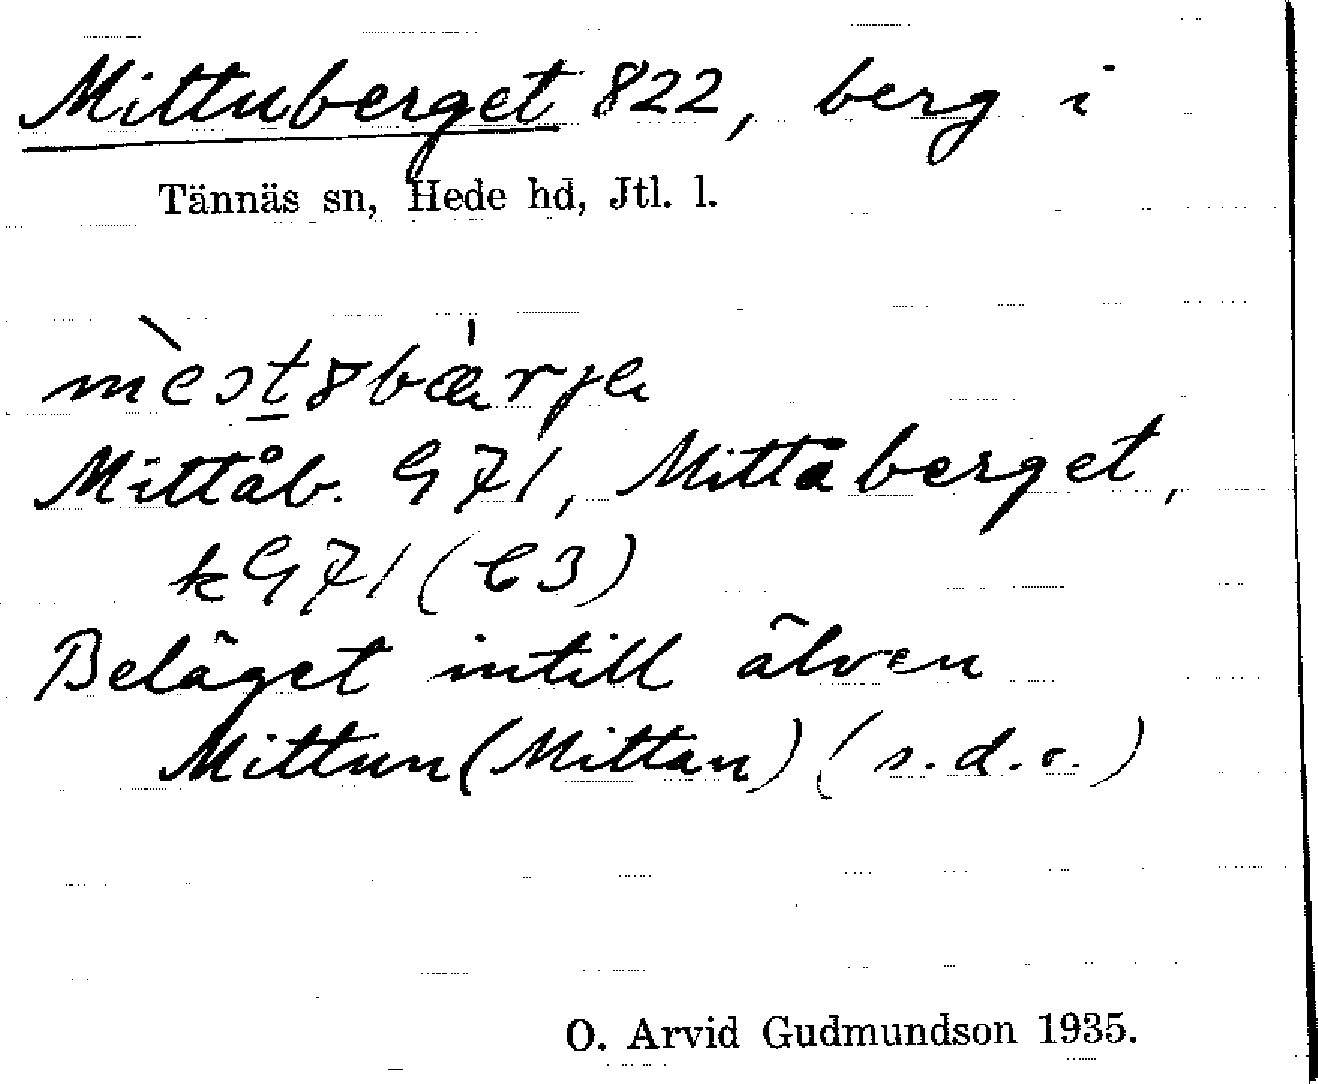 Mittuberget 822, berg i
Tännäs sn, Hede hd, Jtl. l.
Mittåb. G 71, Mittåberget,
kG71 (C3)
Beläget intill älven
Mittun (Mittan) (s.d.o.)
O. Arvid Gudmundson 1935.